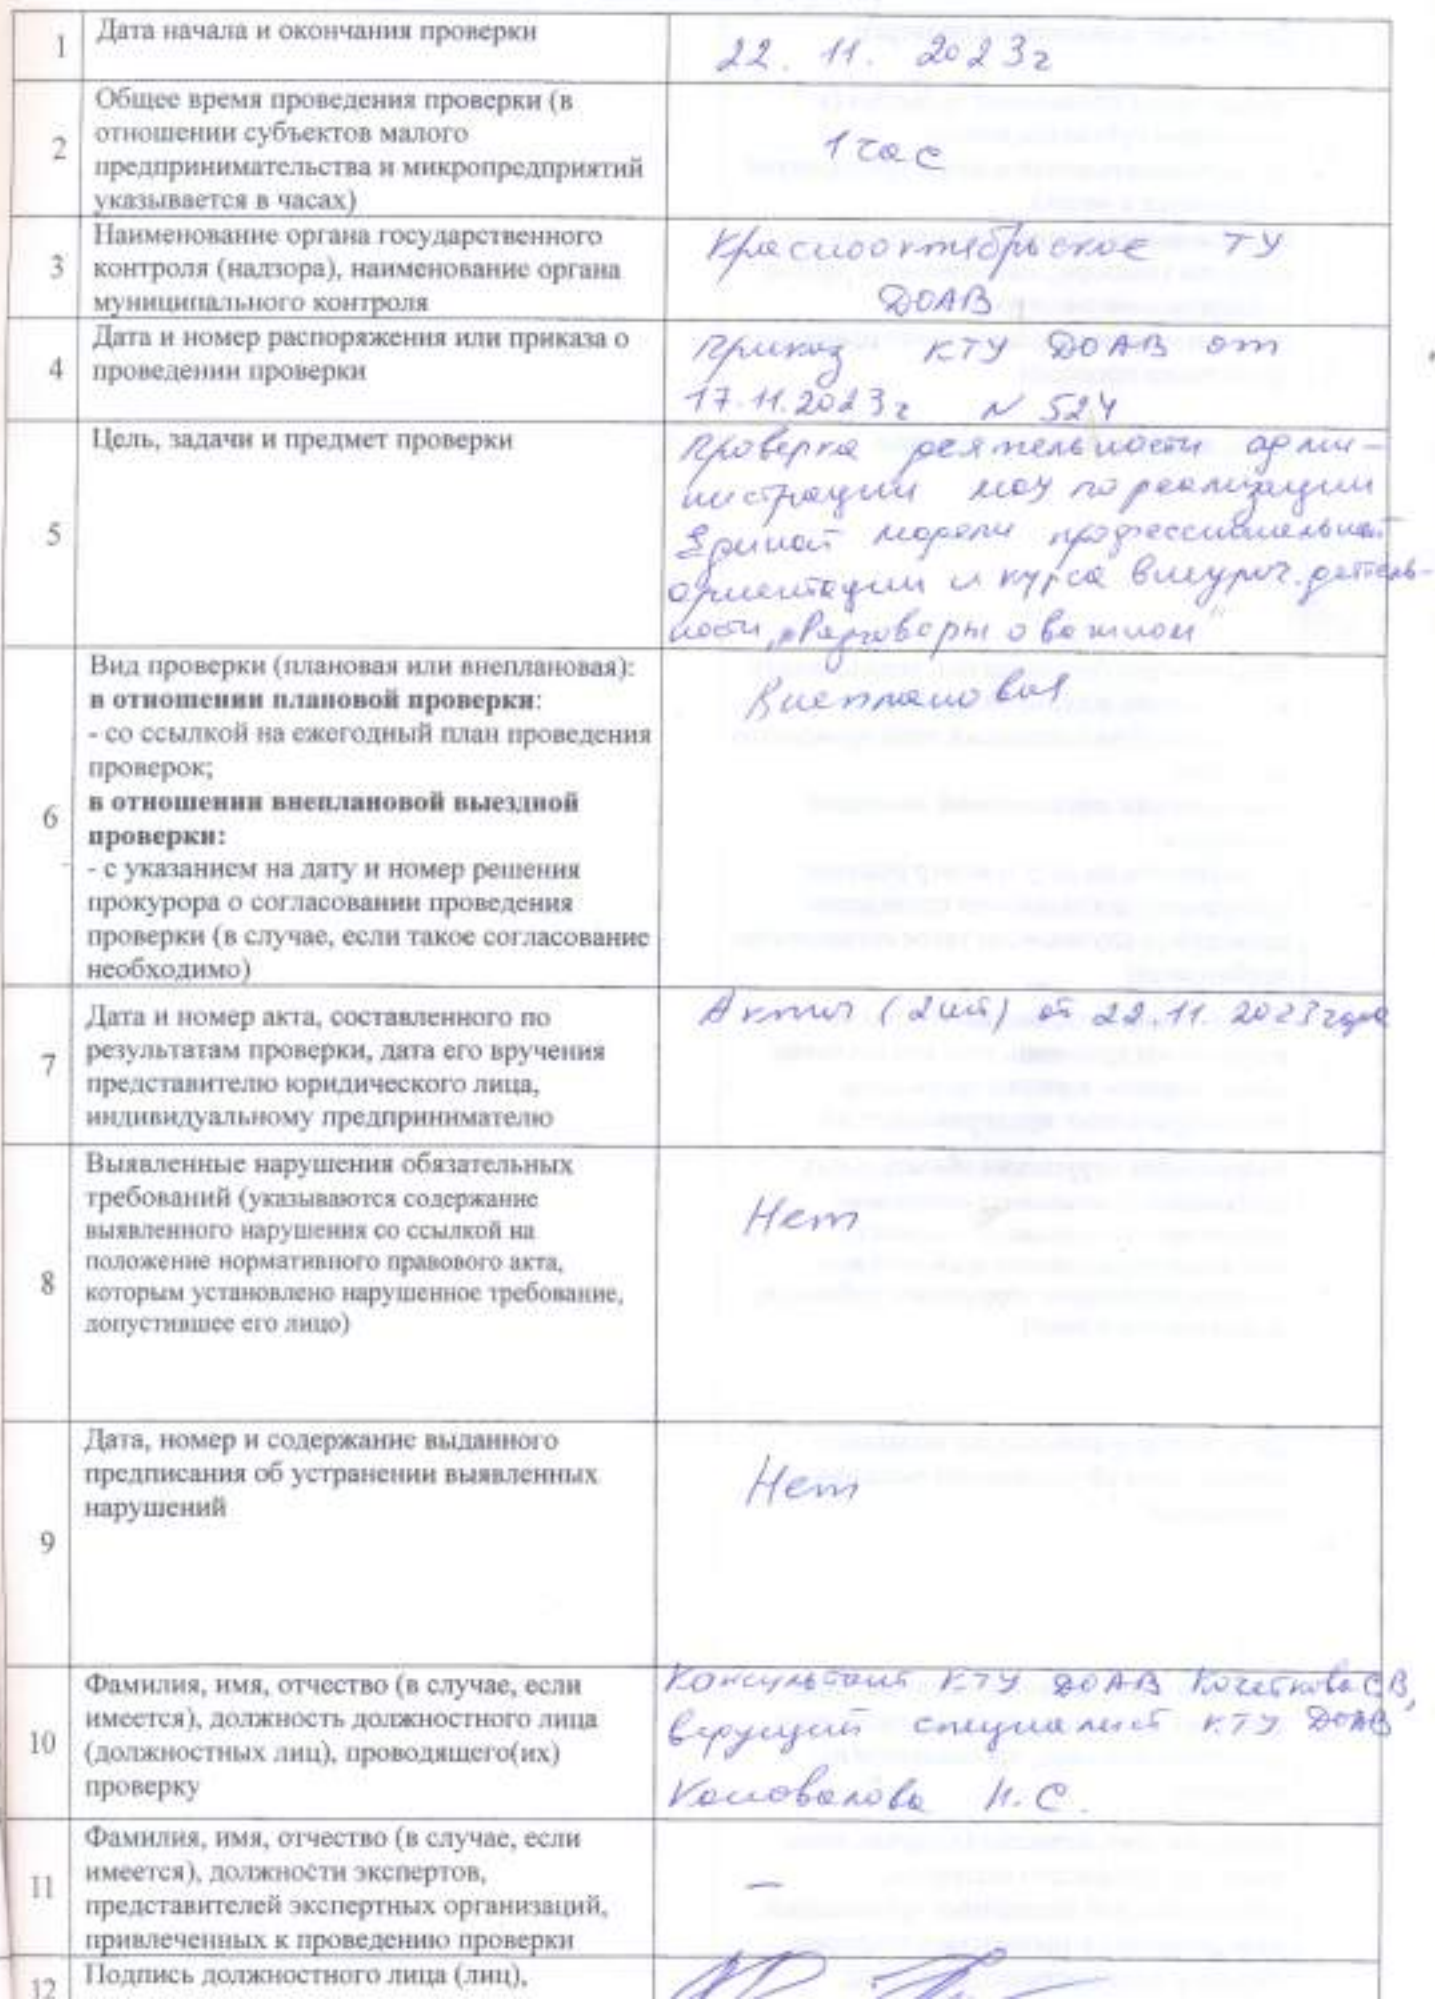 1
Дата начала и окончания проверки
22. 11. 2023г
2
Общее время проведения проверки (в
отношении субъектов малого
предпринимательства и микропредприятий
указывается в часах)
1 час
3
Наименование органа государственного
контроля (надзора), наименование органа
муниципального контроля
Краснооктябрьское ТУ
ДОАВ
4
Дата и номер распоряжения или приказа о
проведении проверки
Приказ КТУ ДОАВ от
17.11.2023г N 524
5
Цель, задачи и предмет проверки
Проверка деятельности адми-
нистрации МОУ по реализации
Единой модели профессиональной
ориентации и курса внеуроч. деятель-
ности „Разговоры о важном"
6
Вид проверки (плановая или внеплановая):
в отношении плановой проверки:
- со ссылкой на ежегодный план проведения
проверок;
в отношении внеплановой выездной
проверки:
- с указанием на дату и номер решения
прокурора о согласовании проведения
проверки (в случае, если такое согласование
необходимо)
Внеплановая
7
Дата и номер акта, составленного по
результатам проверки, дата его вручения
представителю юридического лица,
индивидуальному предпринимателю
от 22.11.2023 года
8
Выявленные нарушения обязательных
требований (указываются содержание
выявленного нарушения со ссылкой на
положение нормативного правового акта,
которым установлено нарушенное требование,
допустившее его лицо)
Нет
9
Дата, номер и содержание выданного
предписания об устранении выявленных
нарушений
Нет
10
Фамилия, имя, отчество (в случае, если
имеется), должность должностного лица
(должностных лиц), проводящего(их)
проверку
Консультант КТУ ДОАВ Кочеткова С.В,
ведущий специалист КТУ ДОАВ
Коновалова Н.С.
11
Фамилия, имя, отчество (в случае, если
имеется), должности экспертов,
представителей экспертных организаций,
привлеченных к проведению проверки
–
12
Подпись должностного лица (лиц),